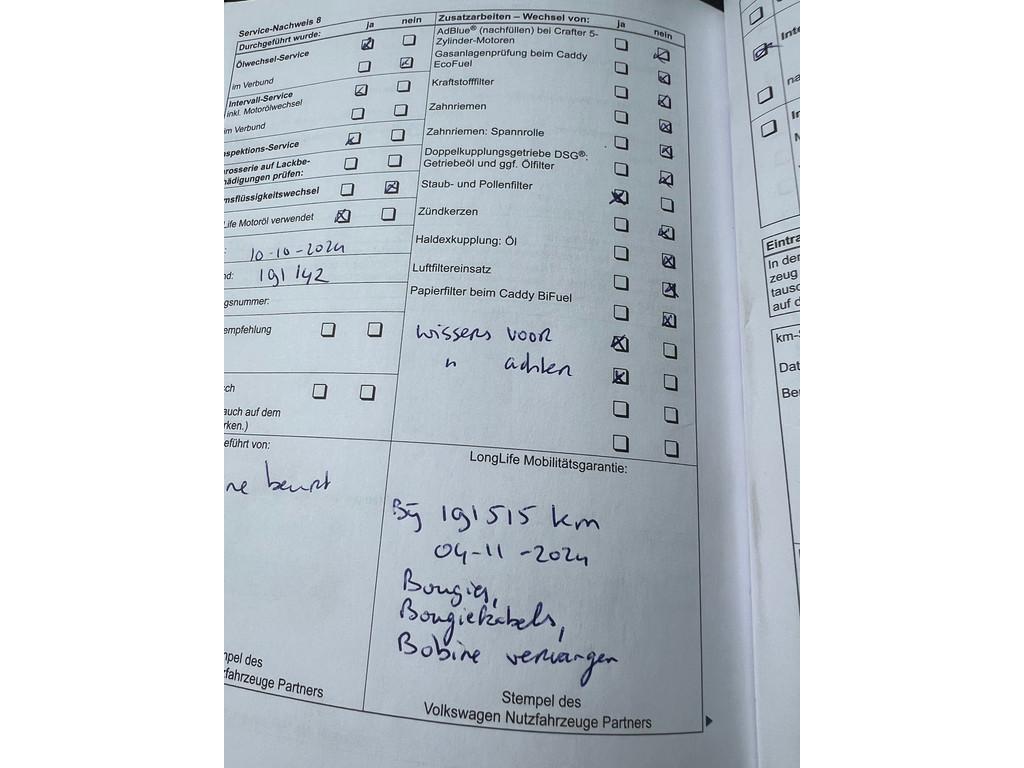 Service-Nachweis 8
Durchgeführt wurde: ja nein
Ölwechsel-Service
im Verbund
Intervall-Service
inkl. Motorölwechsel
im Verbund
nspektions-Service
arosserie auf Lackbe-
hädigungen prüfen:
msflüssigkeitswechsel
Life Motoröl verwendet
: 10-10-2024
nd: 191 142
gsnummer:
empfehlung
ch
auch auf dem
rken.)
eführt von:
ne beurt
mpel des
fahrzeuge Partners
Zusatzarbeiten – Wechsel von: ja nein
AdBlue® (nachfüllen) bei Crafter 5-
Zylinder-Motoren
Gasanlagenprüfung beim Caddy
EcoFuel
Kraftstofffilter
Zahnriemen
Zahnriemen: Spannrolle
Doppelkupplungsgetriebe DSG®:
Getriebeöl und ggf. Ölfilter
Staub- und Pollenfilter
Zündkerzen
Haldexkupplung: Öl
Luftfiltereinsatz
Papierfilter beim Caddy BiFuel
wissers voor
" achter
LongLife Mobilitätsgarantie:
Bij 191515 km
04-11-2024
Bougies,
Bougiekabels,
Bobine vervangen
Stempel des
Volkswagen Nutzfahrzeuge Partners
Inte
na
In
Eintra
In der
zeug
tausc
auf d
km-S
Dat
Be